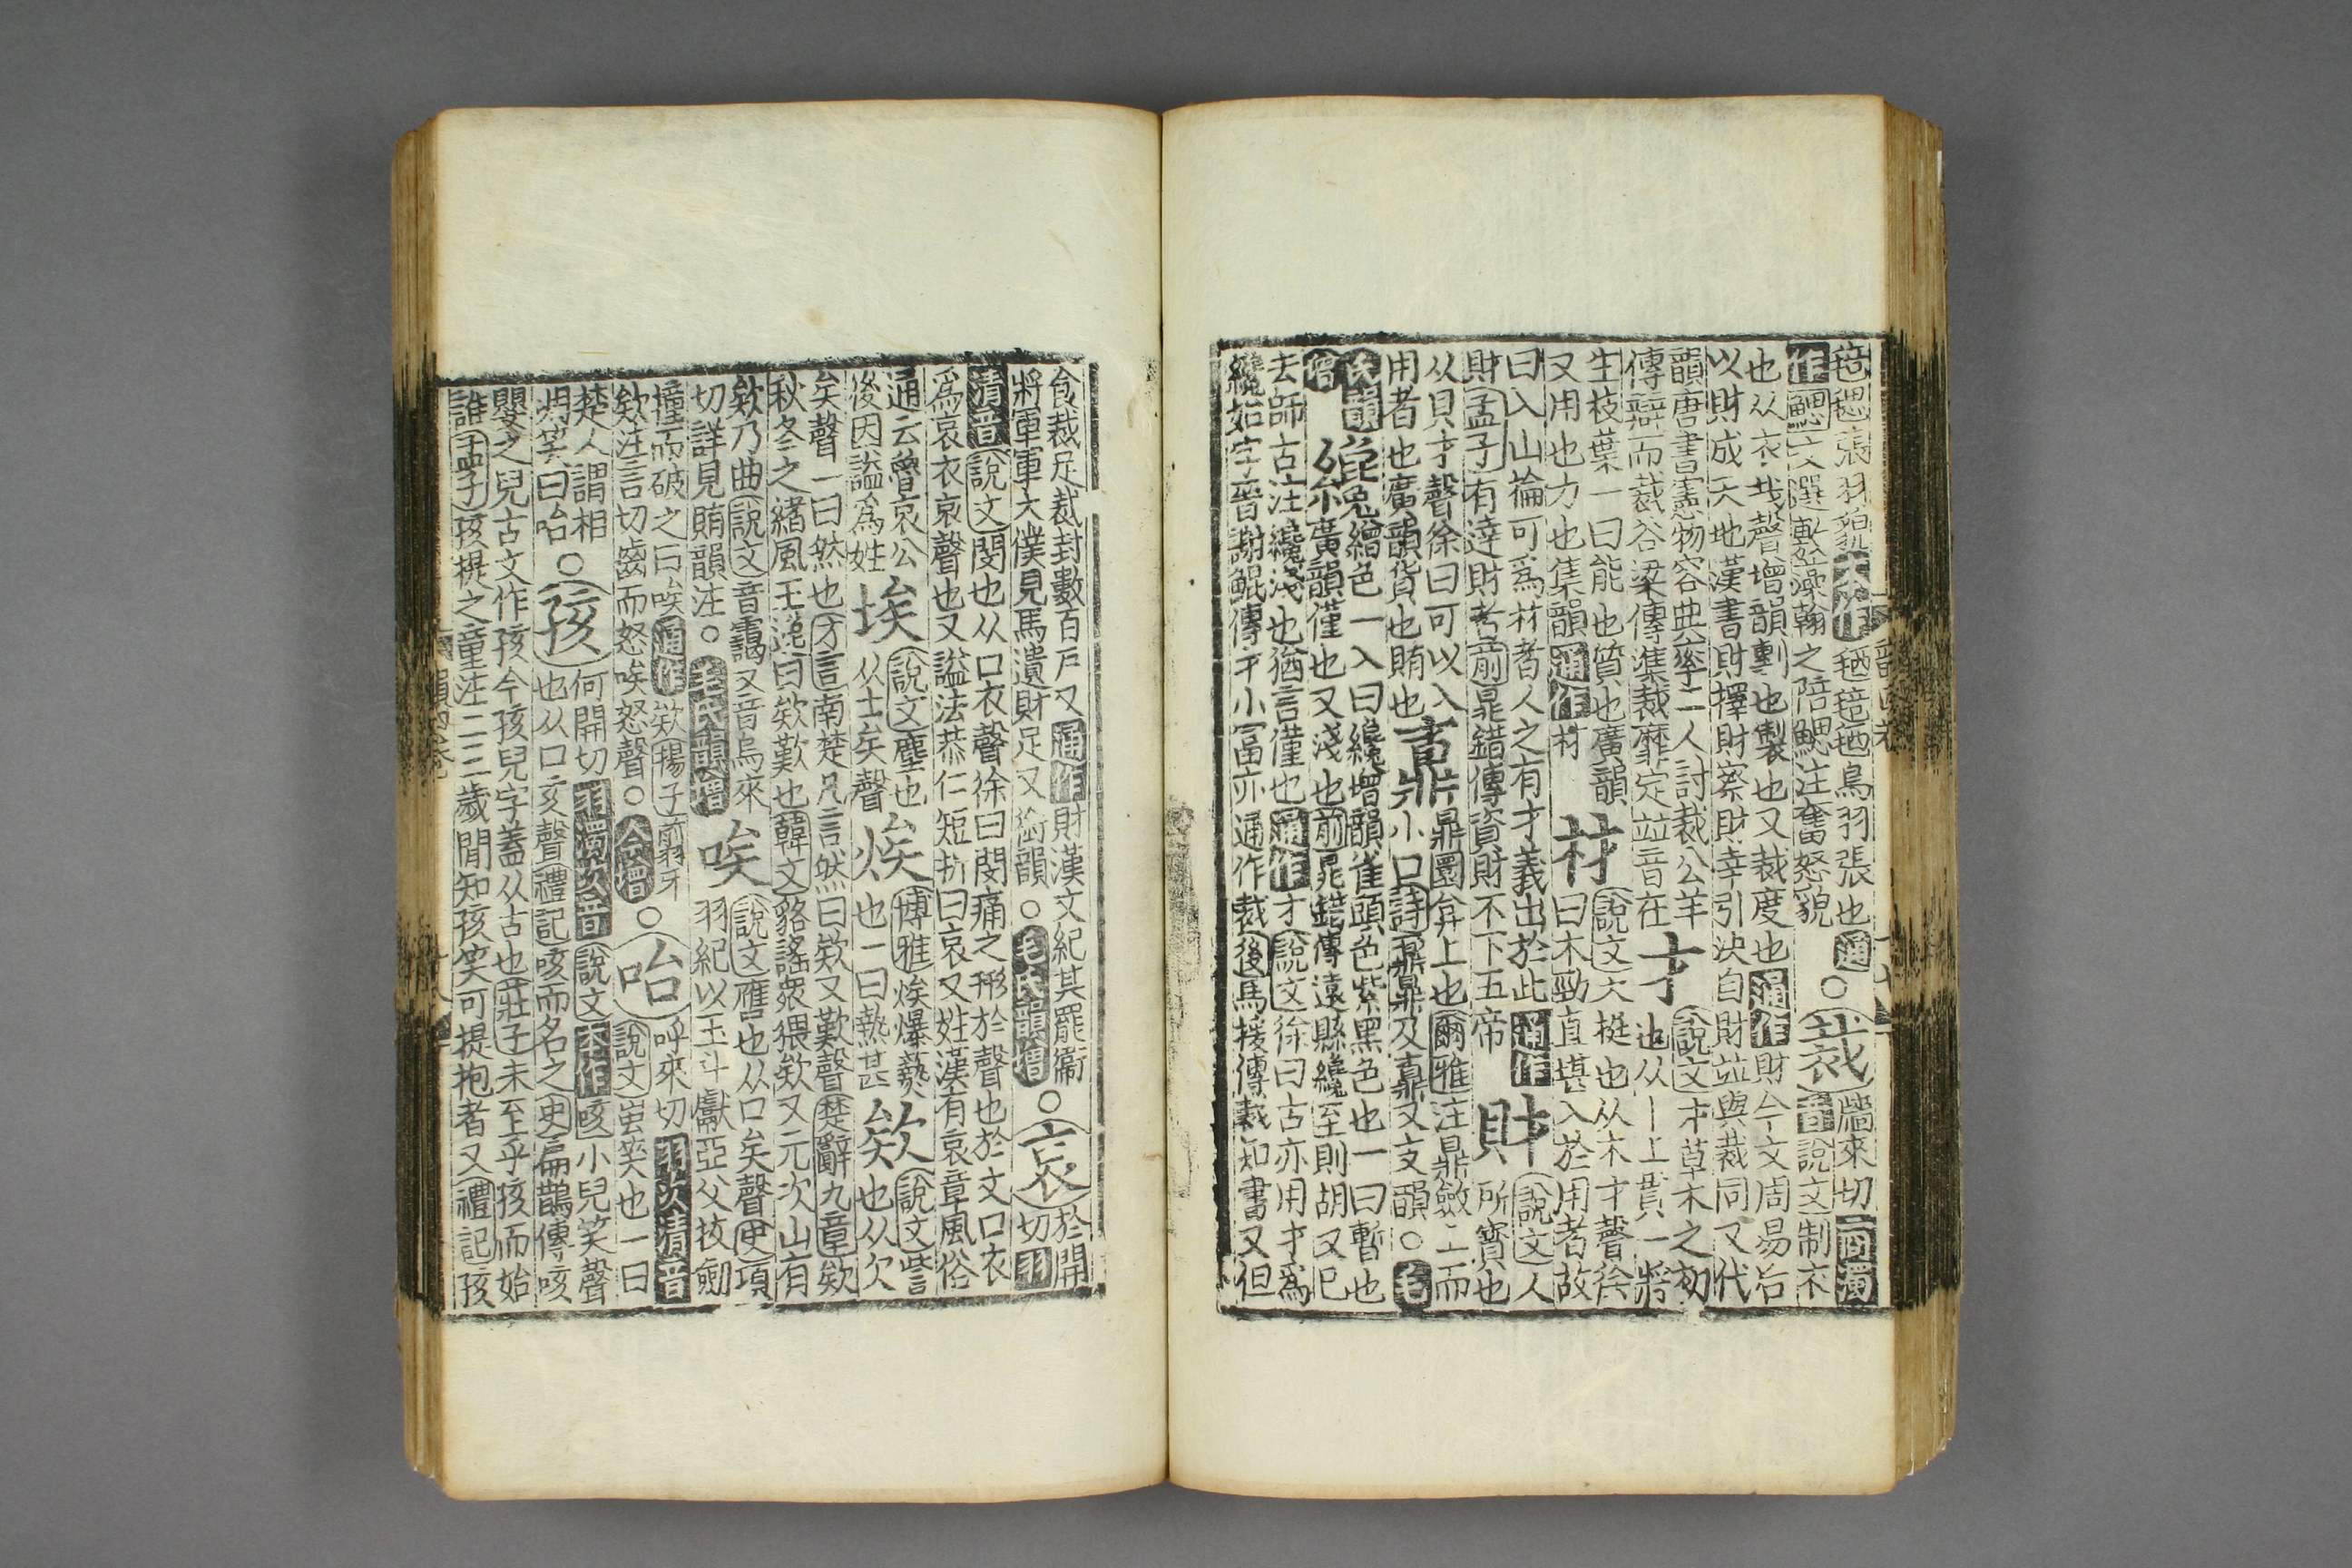 毰毸張羽貌 本作 毢毰也鳥羽張也 通
作 鰓 文選軒𩮰翰之陪鰓注奮怒貌 ○ 裁 牆來切商濁音 說文制衣
也从衣𢦏聲增韻剸也製也又裁度也 通作 財今文周易后
以財成天地漢書財擇財察財幸引決自財並與裁同又代
韻唐書憲物容典率二人討裁公羊
傳辯而裁谷梁傳準裁靡定並音在 才 說文才草木之初也从丨上貫一將
生枝葉一曰能也質也廣韻
又用也力也集韻 通作 材 材 說文木梃也从木才聲徐曰木勁直堪入於用者故
曰入山掄可爲材者人之有才義出於此 通作
財 孟子 有達財者 前 鼂錯傳資財不下五帝 財 說文人所寶也
从貝才聲徐曰可以入
用者也廣韻貨也賄也 鼒 鼎圜弇上也 爾雅 注鼎斂上而小口 詩 鼐鼎及鼒又支韻 ○ 毛
氏韻增 纔 帛雀頭色一入曰纔增韻雀頭色紫黑色也一曰暫也
廣韻僅也又淺也 前 鼂錯傳遠縣纔至則胡又已
去師古注纔淺也猶言僅也 通作 才 說文 徐曰古亦用才爲
纔始字晉謝鯤傳才小富亦通作裁 後 馬援傳裁知書又但
食裁足裁封數百戶又 通作 財漢文紀其罷衞
將軍軍太僕見馬遺財足又銜韻 ○ 毛氏韻增 ○ 哀 於開切羽
清音 說文 閔也从口衣聲徐曰閔痛之形於聲也於文口衣
爲哀衣哀聲也又諡法恭仁短折曰哀又姓漢有哀章風俗
通云魯哀公
後因諡爲姓 埃 說文 塵也从土矣聲 焥 博雅 焥爆爇也一曰熱甚 欸 說文 訾也从欠
矣聲一曰然也 方言 南楚凡言然曰欸又歎聲 楚辭九章 欸
秋冬之緖風王逸曰欸歎也 韓文 貉謠衆猥欸又元次山有
欸乃曲 說文 音靄又音烏來
切詳見賄韻注 ○ 毛氏韻增 唉 說文 應也从口矣聲 史 項羽紀以玉斗獻亞父拔劒
撞而破之曰唉 通作 欸 揚子 翦牙
欸注言切齒而怒唉怒聲 ○ 今增 ○ 咍 呼來切 羽次清音 說文 蚩笑也一曰
楚人謂相
啁笑曰咍 ○ 孩 何開切 羽濁次音 說文 本作 咳 小兒笑聲也从口亥聲 禮記 咳而名之 史 扁鵲傳咳
嬰之兒古文作孩今孩兒字蓋从古也 莊子 未至乎孩而始
誰 孟子 孩提之童注二三歲閒知孩笑可提抱者又 禮記 孩